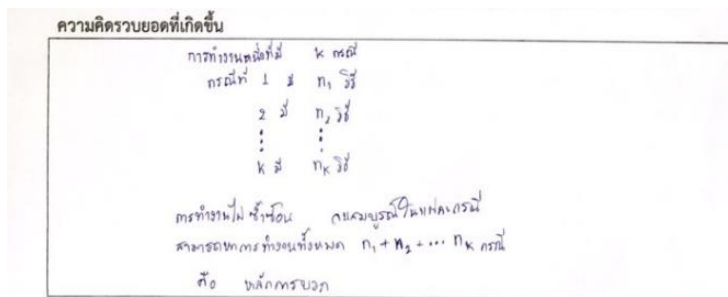 ความคิดรวบยอดที่เกิดขึ้น
การทำงานหนึ่งที่มี k กรณี
กรณีที่ 1 มี n₁ วิธี
2 มี n₂ วิธี
⋮ ⋮
k มี nₖ วิธี
การทำงานไม่ซ้ำซ้อน และสมบูรณ์ในแต่ละกรณี
สามารถหาการทำงานทั้งหมด n₁ + n₂ + ... nₖ กรณี
คือ หลักการบวก